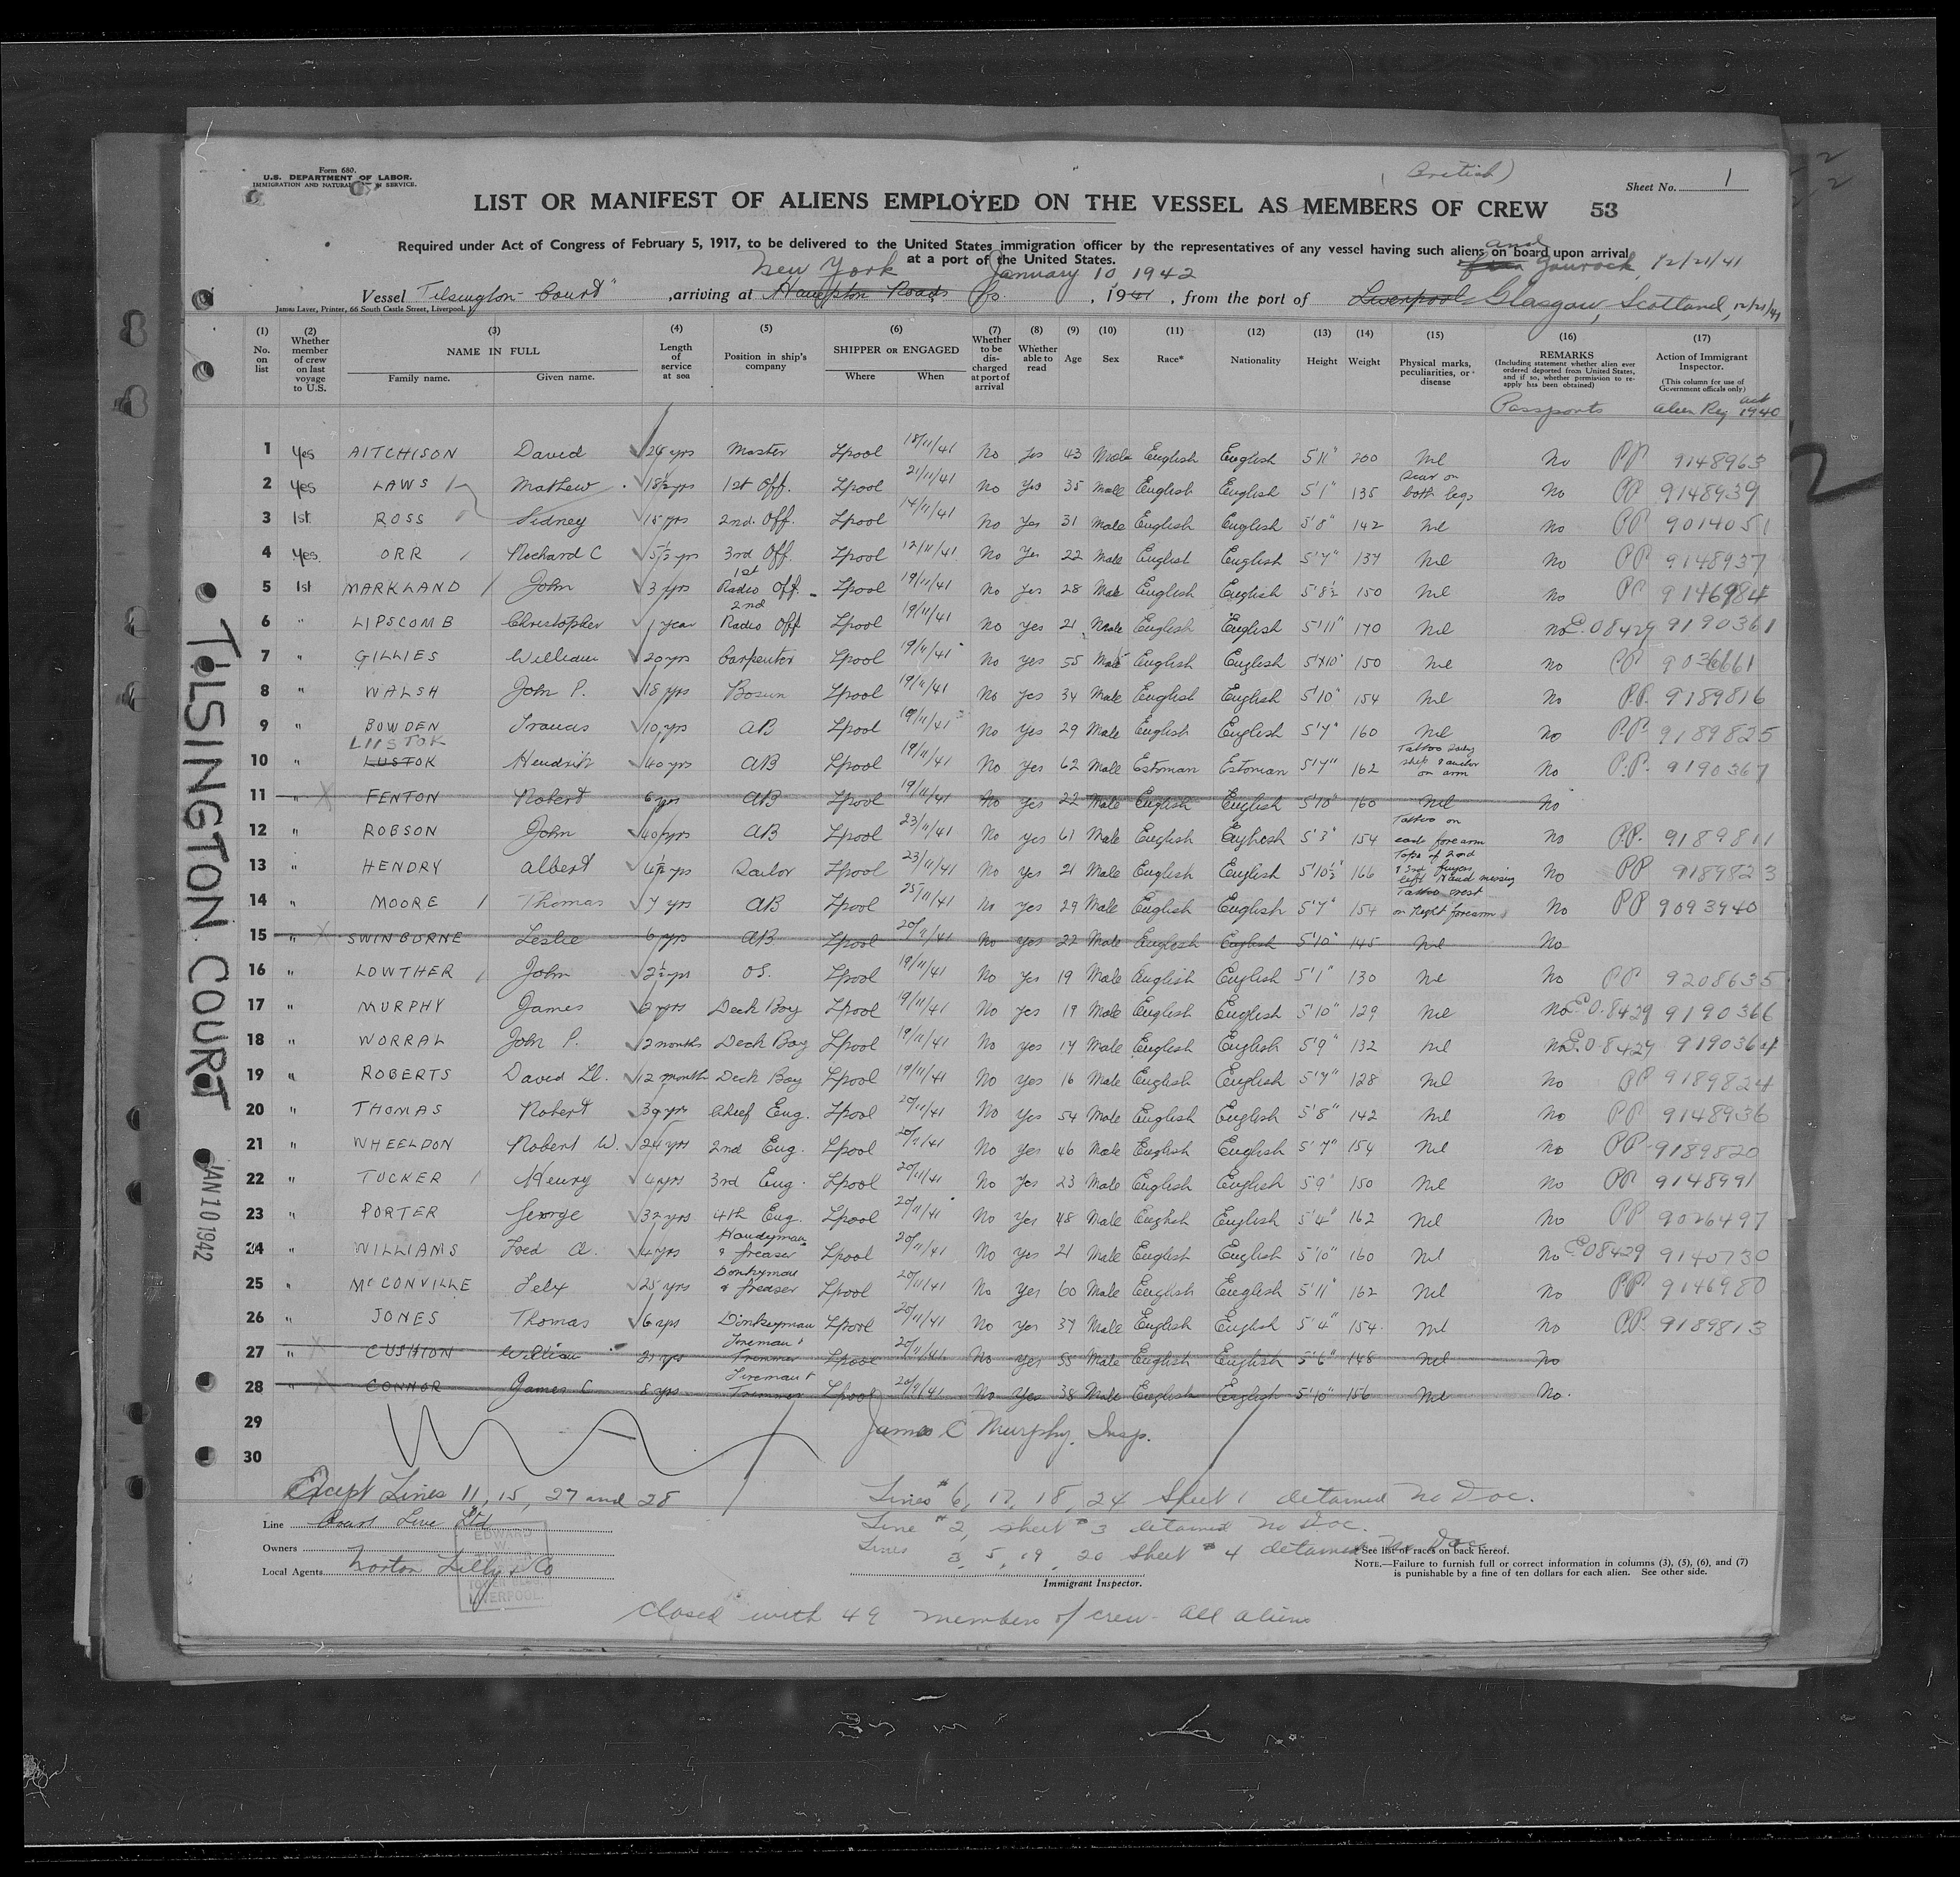 Form 680.
U.S. DEPARTMENT OF LABOR.
IMMIGRATION AND NATURAL N SERVICE.
(British)
Sheet No. 1
LIST OR MANIFEST OF ALIENS EMPLOYED ON THE VESSEL AS MEMBERS OF CREW 53
Required under Act of Congress of February 5, 1917, to be delivered to the United States immigration officer by the representatives of any vessel having such aliens on board upon arrival
at a port of the United States.
and
New York January 10 1942 from Gourock, 12/21/41
Vessel "Tilsington Court" ,arriving at Hampton Roads , 1941 , from the port of Liverpool Glasgow, Scotland, 12/21/41
James Laver, Printer, 66 South Castle Street, Liverpool.
(1) No. on list
(2) Whether member of crew on last voyage to U.S.
(3) NAME IN FULL Family name. Given name.
(4) Length of service at sea
(5) Position in ship's company
(6) SHIPPER OR ENGAGED Where When
(7) Whether to be discharged at port of arrival
(8) Whether able to read
(9) Age
(10) Sex
(11) Race*
(12) Nationality
(13) Height
(14) Weight
(15) Physical marks, peculiarities, or disease
(16) REMARKS (Including statement whether alien ever ordered deported from United States, and if so, whether permission to re-apply has been obtained) Passports
(17) Action of Immigrant Inspector. (This column for use of Government officials only) Alien Reg act 1940
1 Yes AITCHISON David 26 yrs Master Lpool 18/11/41 No Yes 43 Male English English 5'11" 200 Nil No PP 9148963
2 Yes LAWS Mathew 18½ yrs 1st Off. Lpool 21/11/41 No Yes 35 Male English English 5'1" 135 Scar on both legs No PP 9148939
3 1st ROSS Sidney 15 yrs 2nd. Off. Lpool 14/11/41 No Yes 31 Male English English 5'8" 142 Nil No PP 9014051
4 Yes. ORR Richard C 5½ yrs 3rd Off. Lpool 12/11/41 No Yes 22 Male English English 5'7" 137 Nil No PP 9148937
5 1st MARKLAND John 3 yrs 1st Radio Off. Lpool 19/11/41 No Yes 28 Male English English 5'8½ 150 Nil No PP 9146984
6 " LIPSCOMB Christopher 1 year 2nd Radio Off Lpool 19/11/41 No yes 21 Male English English 5'11" 170 Nil No E.O 8429 9190361
7 " GILLIES William 20 yrs Carpenter Lpool 19/11/41 No yes 55 Male English English 5'10" 150 Nil No PP 9036661
8 " WALSH John P. 18 yrs Bosun Lpool 19/11/41 No yes 34 Male English English 5'10" 154 Nil No P.P. 9189816
9 " BOWDEN Francis 10 yrs AB Lpool 19/11/41 No yes 29 Male English English 5'7" 160 Nil No P.P. 9189825
LIISTOK
10 " LUSTOK Hendrik 40 yrs AB Lpool 19/11/41 No yes 62 Male Estonian Estonian 5'7" 162 Tattoo ship & anchor on arm No P.P. 9190367
11 " X FENTON Robert 6 yrs AB Lpool 19/11/41 No yes 22 Male English English 5'10" 160 Nil No
12 " ROBSON John 40 yrs AB Lpool 23/11/41 No yes 61 Male English English 5'3" 154 Tattoo on each forearm No P.P. 9189811
13 " HENDRY Albert 4½ yrs Sailor Lpool 23/11/41 No yes 21 Male English English 5'10½" 166 Tops of 2nd & 3rd fingers left Hand missing No PP 9189823
14 " MOORE Thomas 7 yrs AB Lpool 25/11/41 No yes 29 Male English English 5'7" 154 Tattoo crest on right forearm No PP 9093940
15 " X SWINBURNE Leslie 6 yrs AB Lpool 20/11/41 No yes 22 Male English English 5'10" 145 Nil No
16 " LOWTHER John 2½ yrs OS. Lpool 19/11/41 No Yes 19 Male English English 5'1" 130 Nil No PP 9208635
17 " MURPHY James 2 yrs Deck Boy Lpool 19/11/41 No yes 19 Male English English 5'10" 129 Nil No E.O. 8429 9190366
18 " WORRAL John P. 2 months Deck Boy Lpool 19/11/41 No yes 17 Male English English 5'9" 132 Nil No E.O. 8429 9190364
19 " ROBERTS David Ll. 12 months Deck Boy Lpool 19/11/41 No Yes 16 Male English English 5'7" 128 Nil No PP 9189824
20 " THOMAS Robert 39 yrs Chief Eng. Lpool 20/11/41 No Yes 54 Male English English 5'8" 142 Nil No PP 9148936
21 " WHEELDON Robert W. 24 yrs 2nd Eng. Lpool 20/11/41 No Yes 46 Male English English 5'7" 154 Nil No PP 9189820
22 " TUCKER Henry 4 yrs 3rd Eng. Lpool 20/11/41 No Yes 23 Male English English 5'9" 150 Nil No PP 9148991
23 " PORTER George 32 yrs 4th Eng. Lpool 20/11/41 No Yes 48 Male English English 5'4" 162 Nil No PP 9026497
24 " WILLIAMS Fred A. 4 yrs Handyman & Greaser Lpool 20/11/41 No Yes 21 Male English English 5'10" 160 Nil No E.O 8429 9140730
25 " McCONVILLE Felix 25 yrs Donkyman & Greaser Lpool 20/11/41 No Yes 60 Male English English 5'11" 162 Nil No PP 9146980
26 " JONES Thomas 6 yrs Donkeyman Lpool 20/11/41 No Yes 37 Male English English 5'4" 154 Nil No P.P. 9189813
27 " X CUSHION William 21 yrs Fireman & Trimmer Lpool 20/11/41 No yes 55 Male English English 5'6" 148 Nil No
28 " X CONNOR James C 8 yrs Fireman & Trimmer Lpool 20/11/41 No Yes 38 Male English English 5'10" 156 Nil No.
29 James C Murphy. Insp.
30
Except Lines 11, 15, 27 and 28
Lines # 6, 17, 18, 24 Sheet 1 detained no Doc.
Line # 2, sheet # 3 detained no Doc.
Lines 3, 5, 19, 20 sheet # 4 detained no Doc
Line Court Line Ltd
Owners
Local Agents Norton Lilly & Co
EDWARD
W
TOWER BLDG.
LIVERPOOL.
Immigrant Inspector.
* See list of races on back hereof.
NOTE.—Failure to furnish full or correct information in columns (3), (5), (6), and (7)
is punishable by a fine of ten dollars for each alien. See other side.
closed with 49 members of crew - all aliens
TILSINGTON COURT
JAN 10 1942
2